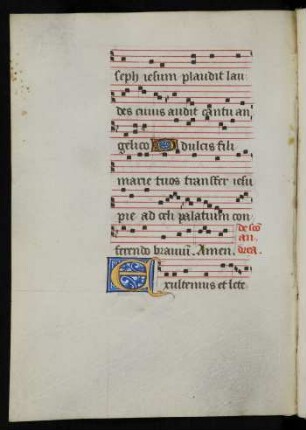 seph iesum plaudit lau
des cuius audit cantu an
gelico O dulcis fili
marie tuos transfer iesu
pie ad celi palatium con
ferendo brauiū. Amen.
de sco
an
drea.
Exultemus et lete